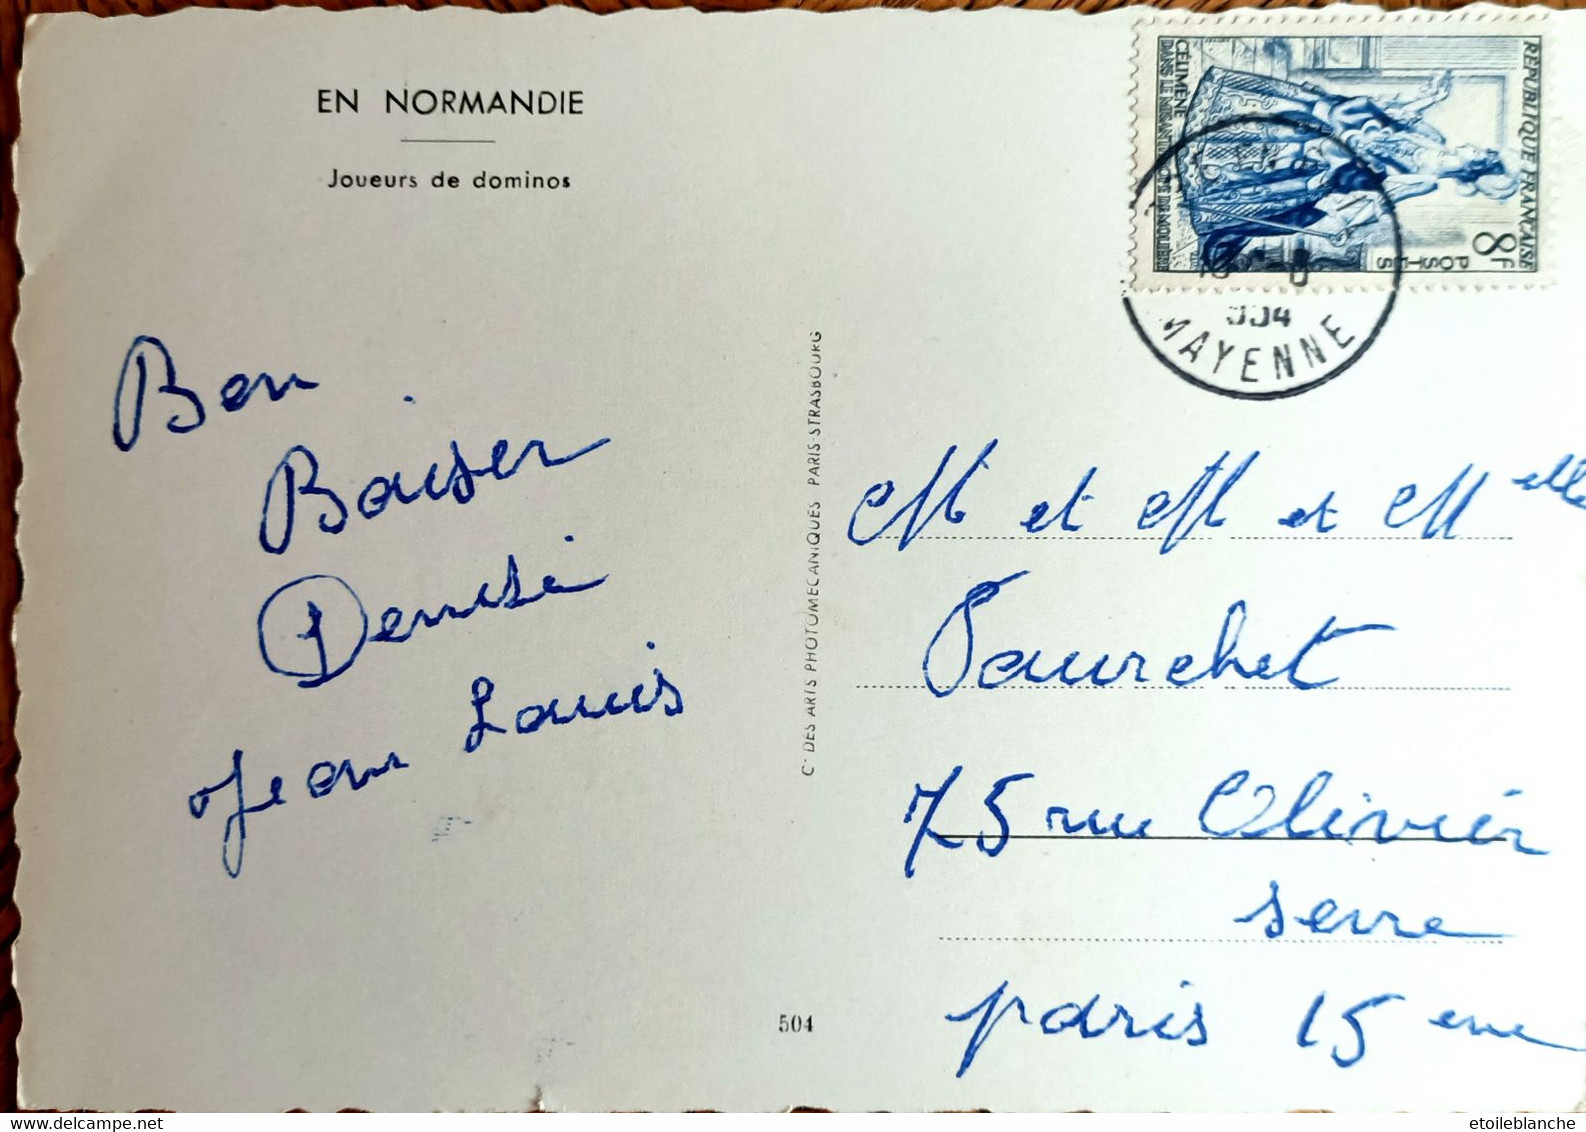 EN NORMANDIE
Joueurs de dominos
Bon
Baiser
Denise
Jean Louis
Cie DES ARTS PHOTOMECANIQUES PARIS-STRASBOURG
504
REPUBLIQUE FRANÇAISE
8F
POSTES
CÉLIMÈNE
DANS LE MISANTHROPE DE MOLIÈRE
MAYENNE
M et M et Melle
Pourchet
75 rue Olivier
serre
paris 15 eme
etoileblanche